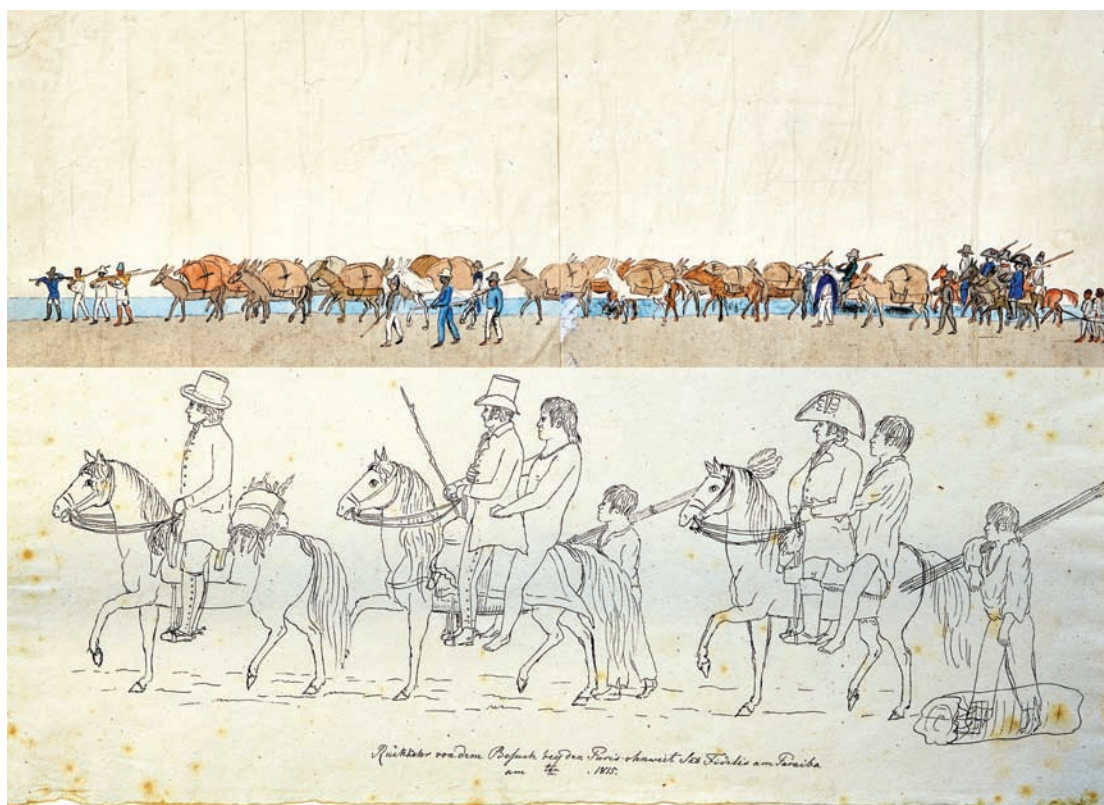 Rückkehr von dem Besuch bey den Puris ohnweit Sto Fidelis am Paraiba
am 1815.